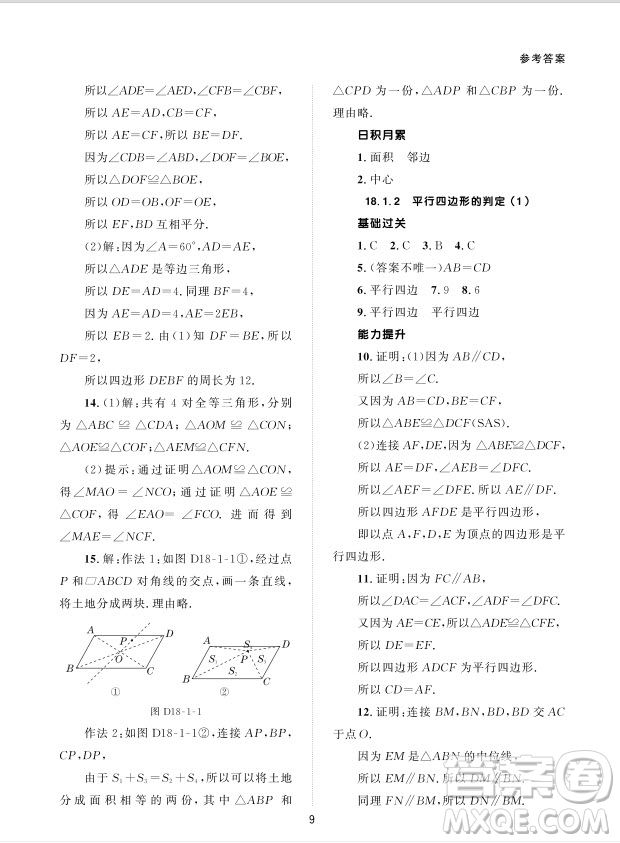 参考答案
所以∠ADE=∠AED,∠CFB=∠CBF,
所以 AE=AD,CF=CB.
所以 AE=CF,所以 BE=DF.
因为∠CDB=∠ABD,∠DOF=∠BOE,
所以△DOF≌△BOE,
所以 OD=OB,OF=OE,
所以 EF,BD 互相平分.
(2)解:因为∠A=60°,AD=AE,
所以△ADE 是等边三角形,
所以 DE=AD=4.同理 BF=4.
因为 AD=AE=4,AE=2EB,
所以 EB=2.由(1)知 DF=BE,所以
DF=2,
所以四边形 DEBF 的周长为 12.
14.(1)解:共有 4 对全等三角形,分别
为 △ABC ≌ △CDA; △AOM ≌ △CON;
△AOE≌△COF;△AEM≌△CFN.
(2)提示:通过证明△AOM≌△CON,
得∠MAO=∠NCO;通过证明△AOE≌
△COF,得∠EAO=∠FCO.进而得到
∠MAE=∠NCF.
15.解:作法 1:如图 D18-1-1①,经过点
P 和□ABCD 对角线的交点,画一条直线,
将土地分成两块.理由略.
A P D
O
B C
①
A S₄ D
S₁ P S₃
S₂
B C
②
图 D18-1-1
作法 2:如图 D18-1-1②,连接 AP,BP,
CP,DP,
由于 S₁+S₃=S₂+S₄,所以可以将土地
分成面积相等的两份,其中△ABP 和
△CPD 为一份,△ADP 和△CBP 为一份.
理由略.
日积月累
1.面积 邻边
2.中心
18.1.2 平行四边形的判定(1)
基础过关
1.C 2.C 3.B 4.C
5.(答案不唯一)AB=CD
6.平行四边 7.9 8.6
9.平行四边 平行四边
能力提升
10.证明:(1)因为 AB∥CD,
所以∠B=∠C.
又因为 AB=CD,BE=CF,
所以△ABE≌△DCF(SAS).
(2)连接 AF,DE,因为△ABE≌△DCF,
所以 AE=DF,∠AEB=∠DFC.
所以∠AEF=∠DFE.所以 AE∥DF.
所以四边形 AFDE 是平行四边形,
即以点 A,F,D,E 为顶点的四边形是平
行四边形.
11.证明:因为 FC∥AB,
所以∠DAC=∠ACF,∠ADF=∠DFC.
又因为 AE=CE,所以△ADE≌△CFE.
所以 DE=EF.
所以四边形 ADCF 为平行四边形.
所以 CD=AF.
12.证明:连接 BM,BN,BD,BD 交 AC
于点 O.
因为 EM 是△ABN 的中位线.
所以 EM∥BN.所以 DM∥BN.
同理 FN∥BM,所以 DN∥BM.
9